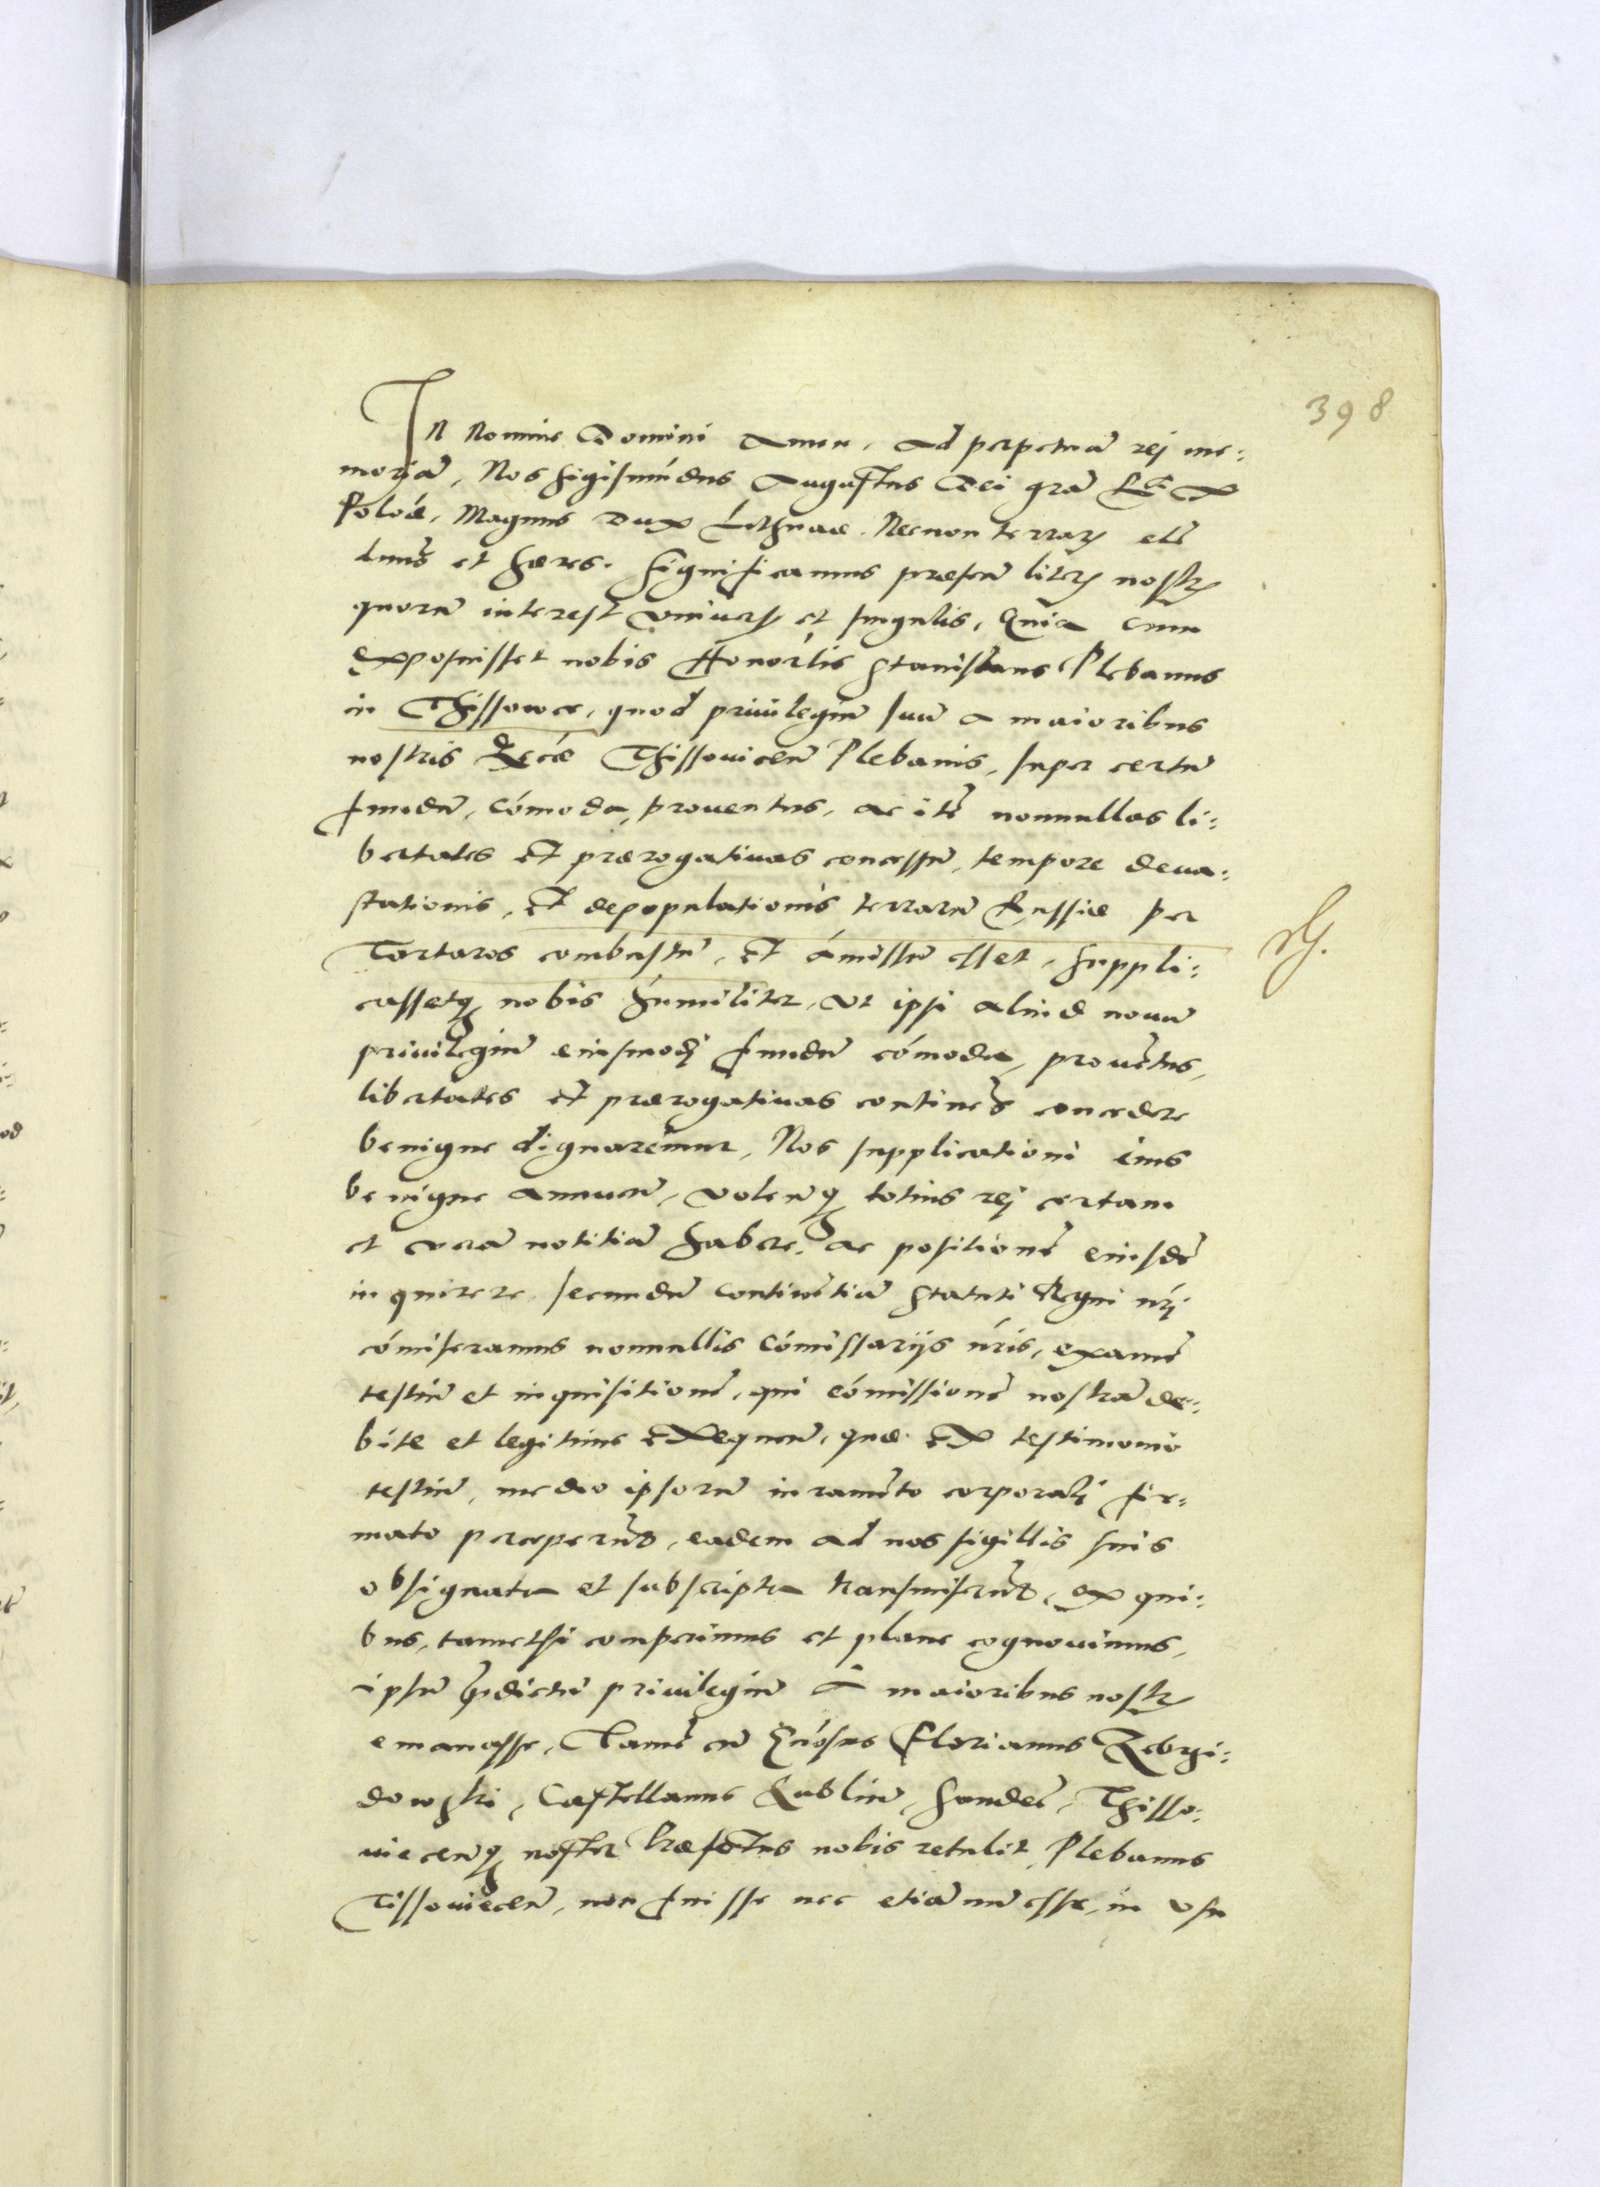 398
In Nomine Domini Amen. Ad perpetuã rej me:
moriã, Nos Sigismũdus Augustus Dei grã REX
Poloẽ, Magnus Dux Lithuae. Necnon terrarz etc̃
dnus et haeres. Significamus praesen̄ literz nostrz
quorũ interest vniuersz et singulis, Quia cum
Exposuisset nobis Honorlis Stanislaus Plebanus
in Thissowce, quod priuilegiũ suũ a maioribus
nostris Ecc̃ae Thissouicen̄ Plebanis, super certũ
fundũ, cómoda, prouentus, ac itẽ nonnullas li:
bertates et praerogatiuas concessũ, tempore deua:
stationis, et depopulationis terrarũ Russiae per
Tartaros combustũ, et ámissũ esset, Suppli:
cassetq nobis humiliter, vt ipsi aliud nouũ
priuilegiũ eiusmodj fundũ cómoda, prouẽtus,
libertates et praerogatiuas continẽs concedere
benigne dignaremur, Nos supplicationi eius
benigne annuen̄, volen̄q totius rej certam
et verã notitiã habere, ac positionẽ eiusdẽ
inquirere secundũ continẽtiã Statuti Regni nrj
cómiseramus nonnullis Cómissarijs nr̃is, examẽ
testiũ et inquisitionẽ, qui cómissionẽ nostrã de:
bite et legitime exequen̄, quae ex testimonio
testiũ, medio ipsorũ iuramẽto corporalj fir:
mato perceperũt, eadem ad nos sigillis suis
obsignata et subscripta transmiserũt, ex qui:
bus, tametsi comperimus et plane cognouimus,
ipsũ p̃dictũ priuilegiũ a maioribus nostrz
emanasse, Tamẽ cũ Gñosus Florianus Zebrzi:
dowski, Castellanus Lublin̄, Haudeč, Thisso:
uiecen̄q noster Praefectus nobis retulit, Plebanus
Tissouiecen̄, non fuisse nec etiã nũ esse, in vsu